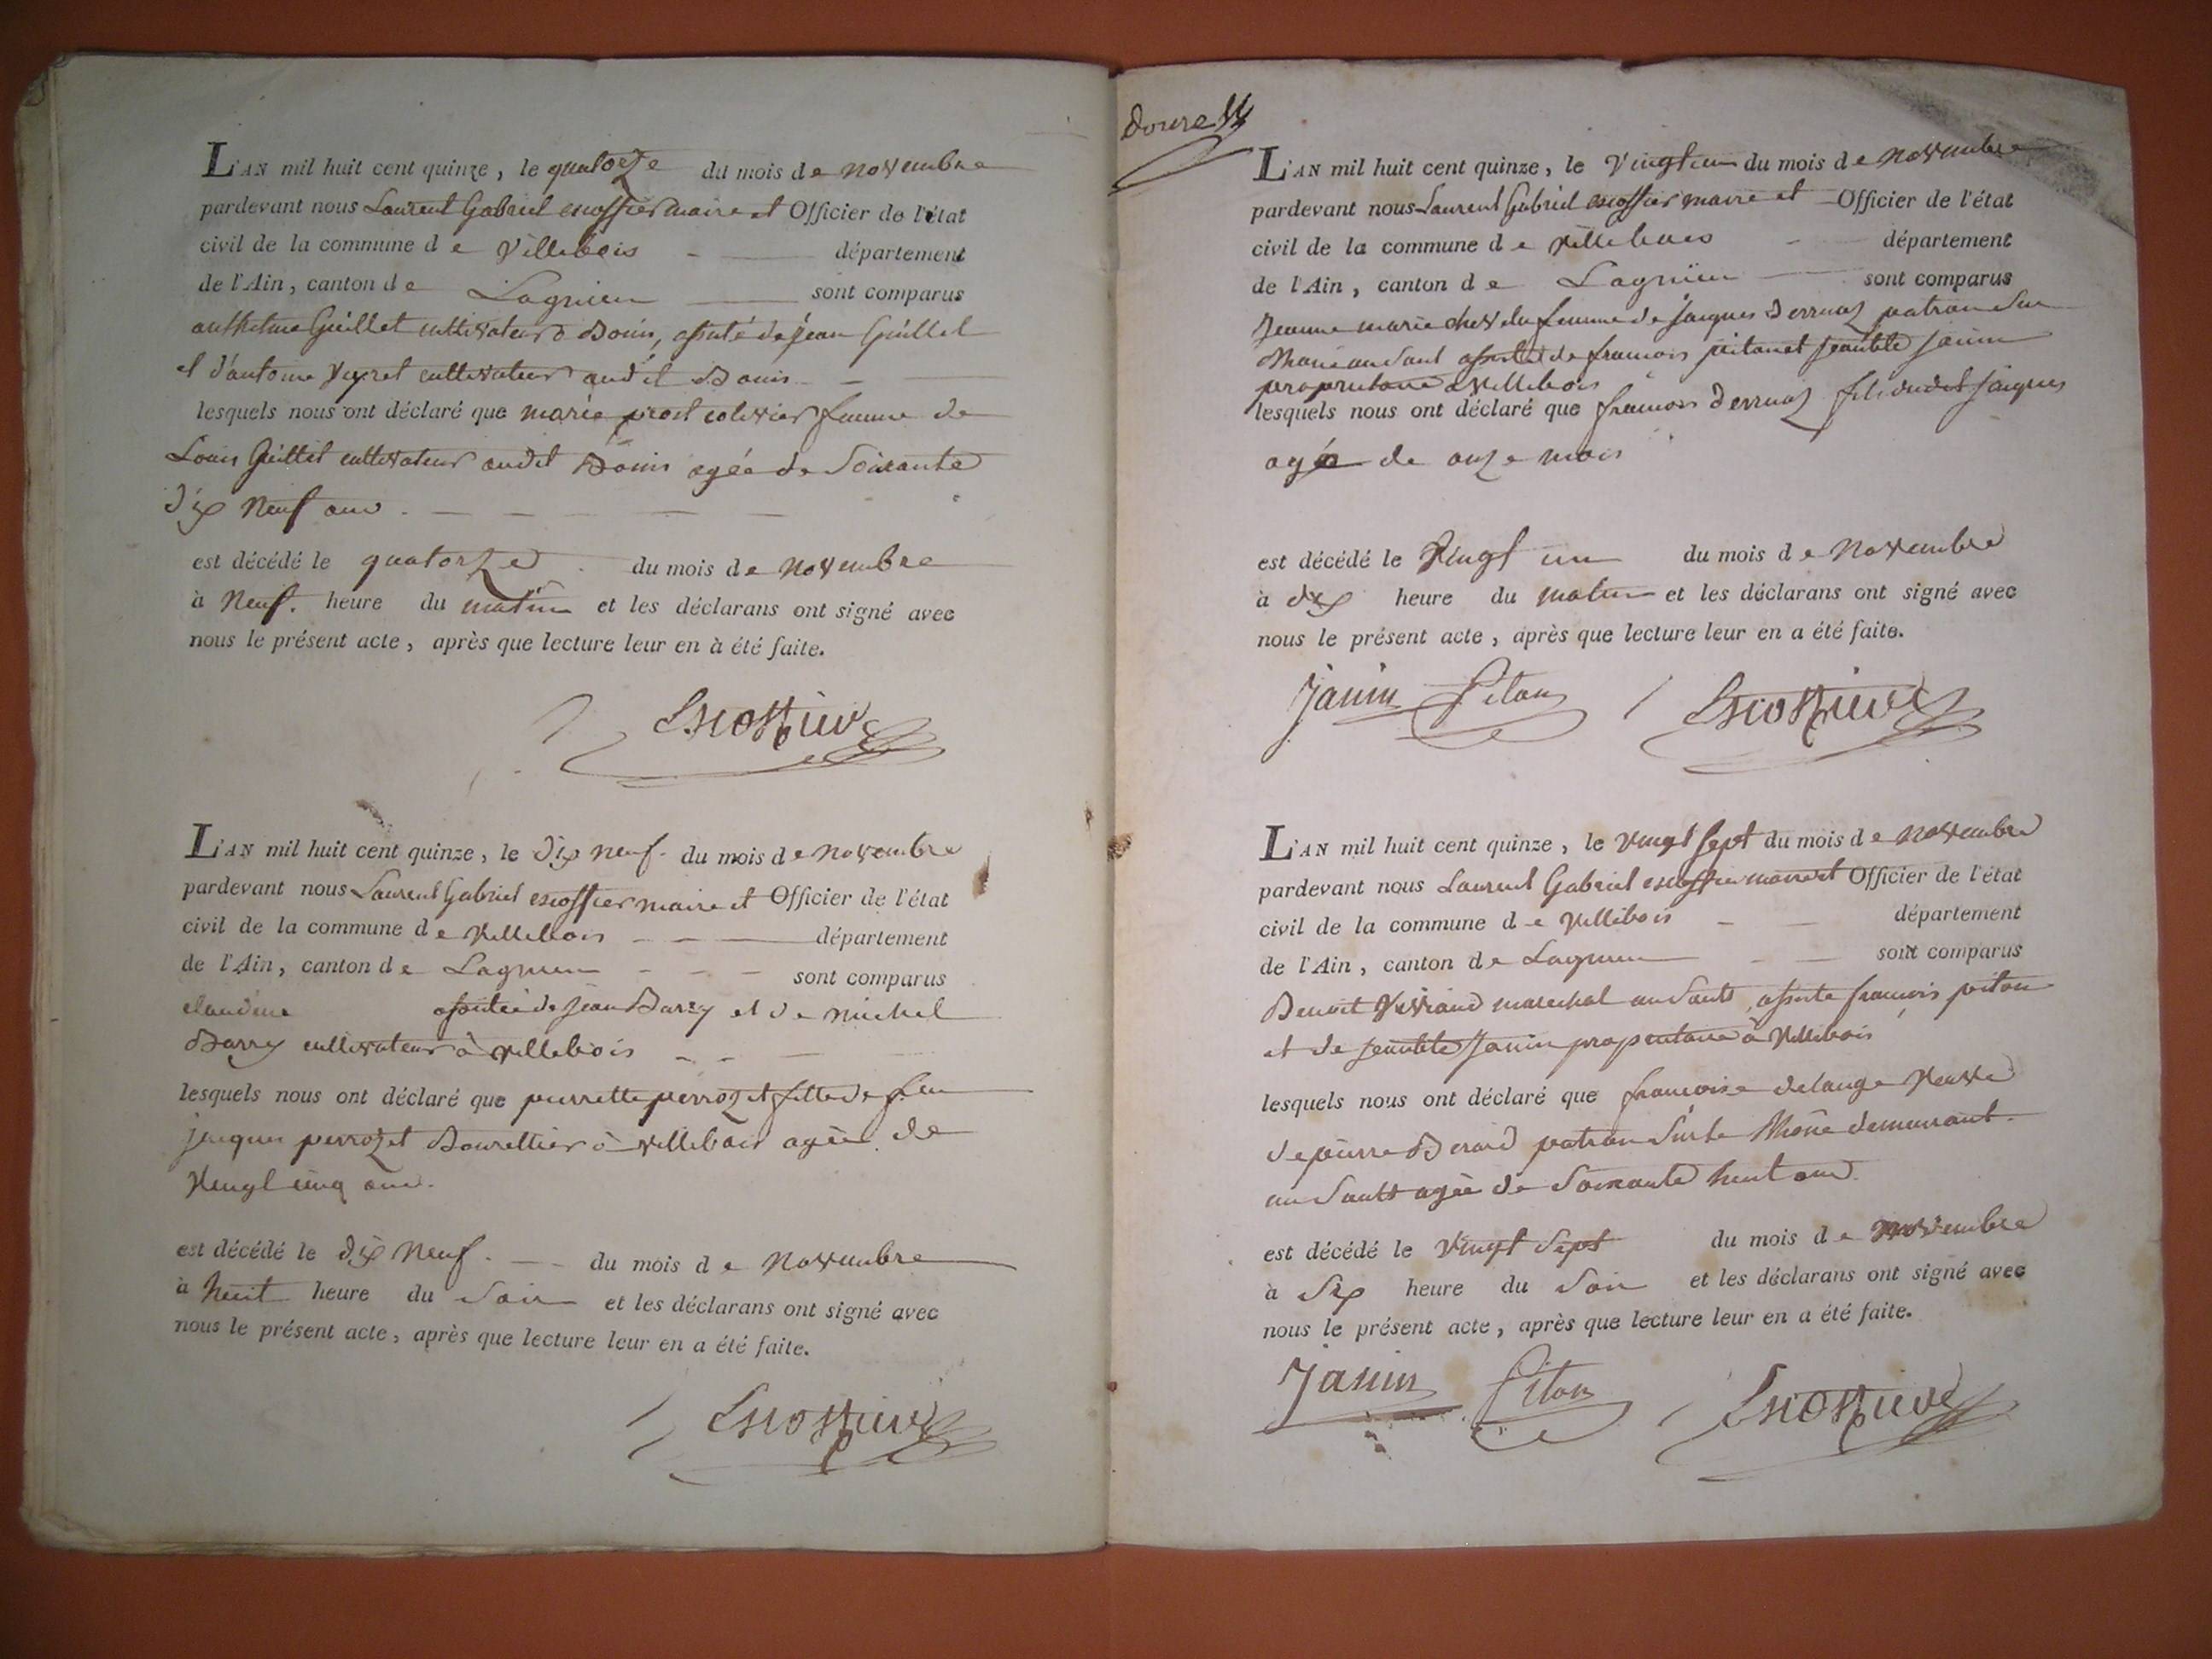 L'AN mil huit cent quinze, le quatorze du mois de novembre
pardevant nous Laurent Gabriel escoffier maire et Officier de l'état
civil de la commune de Villebois département
de l'Ain, canton de Lagnieu sont comparus
anthelme Guillet cultivateur à Bouis, assisté de jean Guillet
et d'antoine Veyret cultivateur audit Bouis
lesquels nous ont déclaré que marie prost colivier femme de
Louis Guillet cultivateur audit Bouis agée de Soixante
dix Neuf ans.
est décédé le quatorze du mois de novembre
à Neuf. heure du matin et les déclarans ont signé avec
nous le présent acte, après que lecture leur en à été faite.
Escoffier
L'AN mil huit cent quinze, le dix neuf du mois de novembre
pardevant nous Laurent Gabriel escoffier maire et Officier de l'état
civil de la commune de Villebois département
de l'Ain, canton de Lagnieu sont comparus
claudine assistée de jean Barry et de michel
Barry cultivateur à villebois
lesquels nous ont déclaré que pierrette perrozet fille de feu
jacques perrozet Bourellier à villebois agée de
Vingt cinq ans.
est décédé le dix Neuf. du mois de Novembre
à huit heure du Soir et les déclarans ont signé avec
nous le présent acte, après que lecture leur en a été faite.
Escoffier
douze
L'AN mil huit cent quinze, le Vingt un du mois de novembre
pardevant nous Laurent Gabriel escoffier maire et Officier de l'état
civil de la commune de Villebois département
de l'Ain, canton de Lagnieu sont comparus
Jeanne marie femme de jacques Derruaz patron Sur
au Sault assisté de francois piton et jeanbte janin
proprietaire à Villebois
lesquels nous ont déclaré que francois Derruaz fils dudit jacques
agé de onze mois
est décédé le Vingt un du mois de Novembre
à dix heure du matin et les déclarans ont signé avec
nous le présent acte, après que lecture leur en a été faite.
Janin Piton Escoffier
L'AN mil huit cent quinze, le Vingt Sept du mois de novembre
pardevant nous Laurent Gabriel escoffier maire et Officier de l'état
civil de la commune de Villebois département
de l'Ain, canton de Lagnieu sont comparus
Benoit Viviand marechal au Sault, assisté francois piton
et de jeanbte Janin proprietaire à Villebois
lesquels nous ont déclaré que francoise delange Veuve
de pierre Berard patron Sur le Rhône demeurant
au Sault agée de Soixante huit ans
est décédé le Vingt Sept du mois de Novembre
à Six heure du Soir et les déclarans ont signé avec
nous le présent acte, après que lecture leur en a été faite.
Janin Piton Escoffier